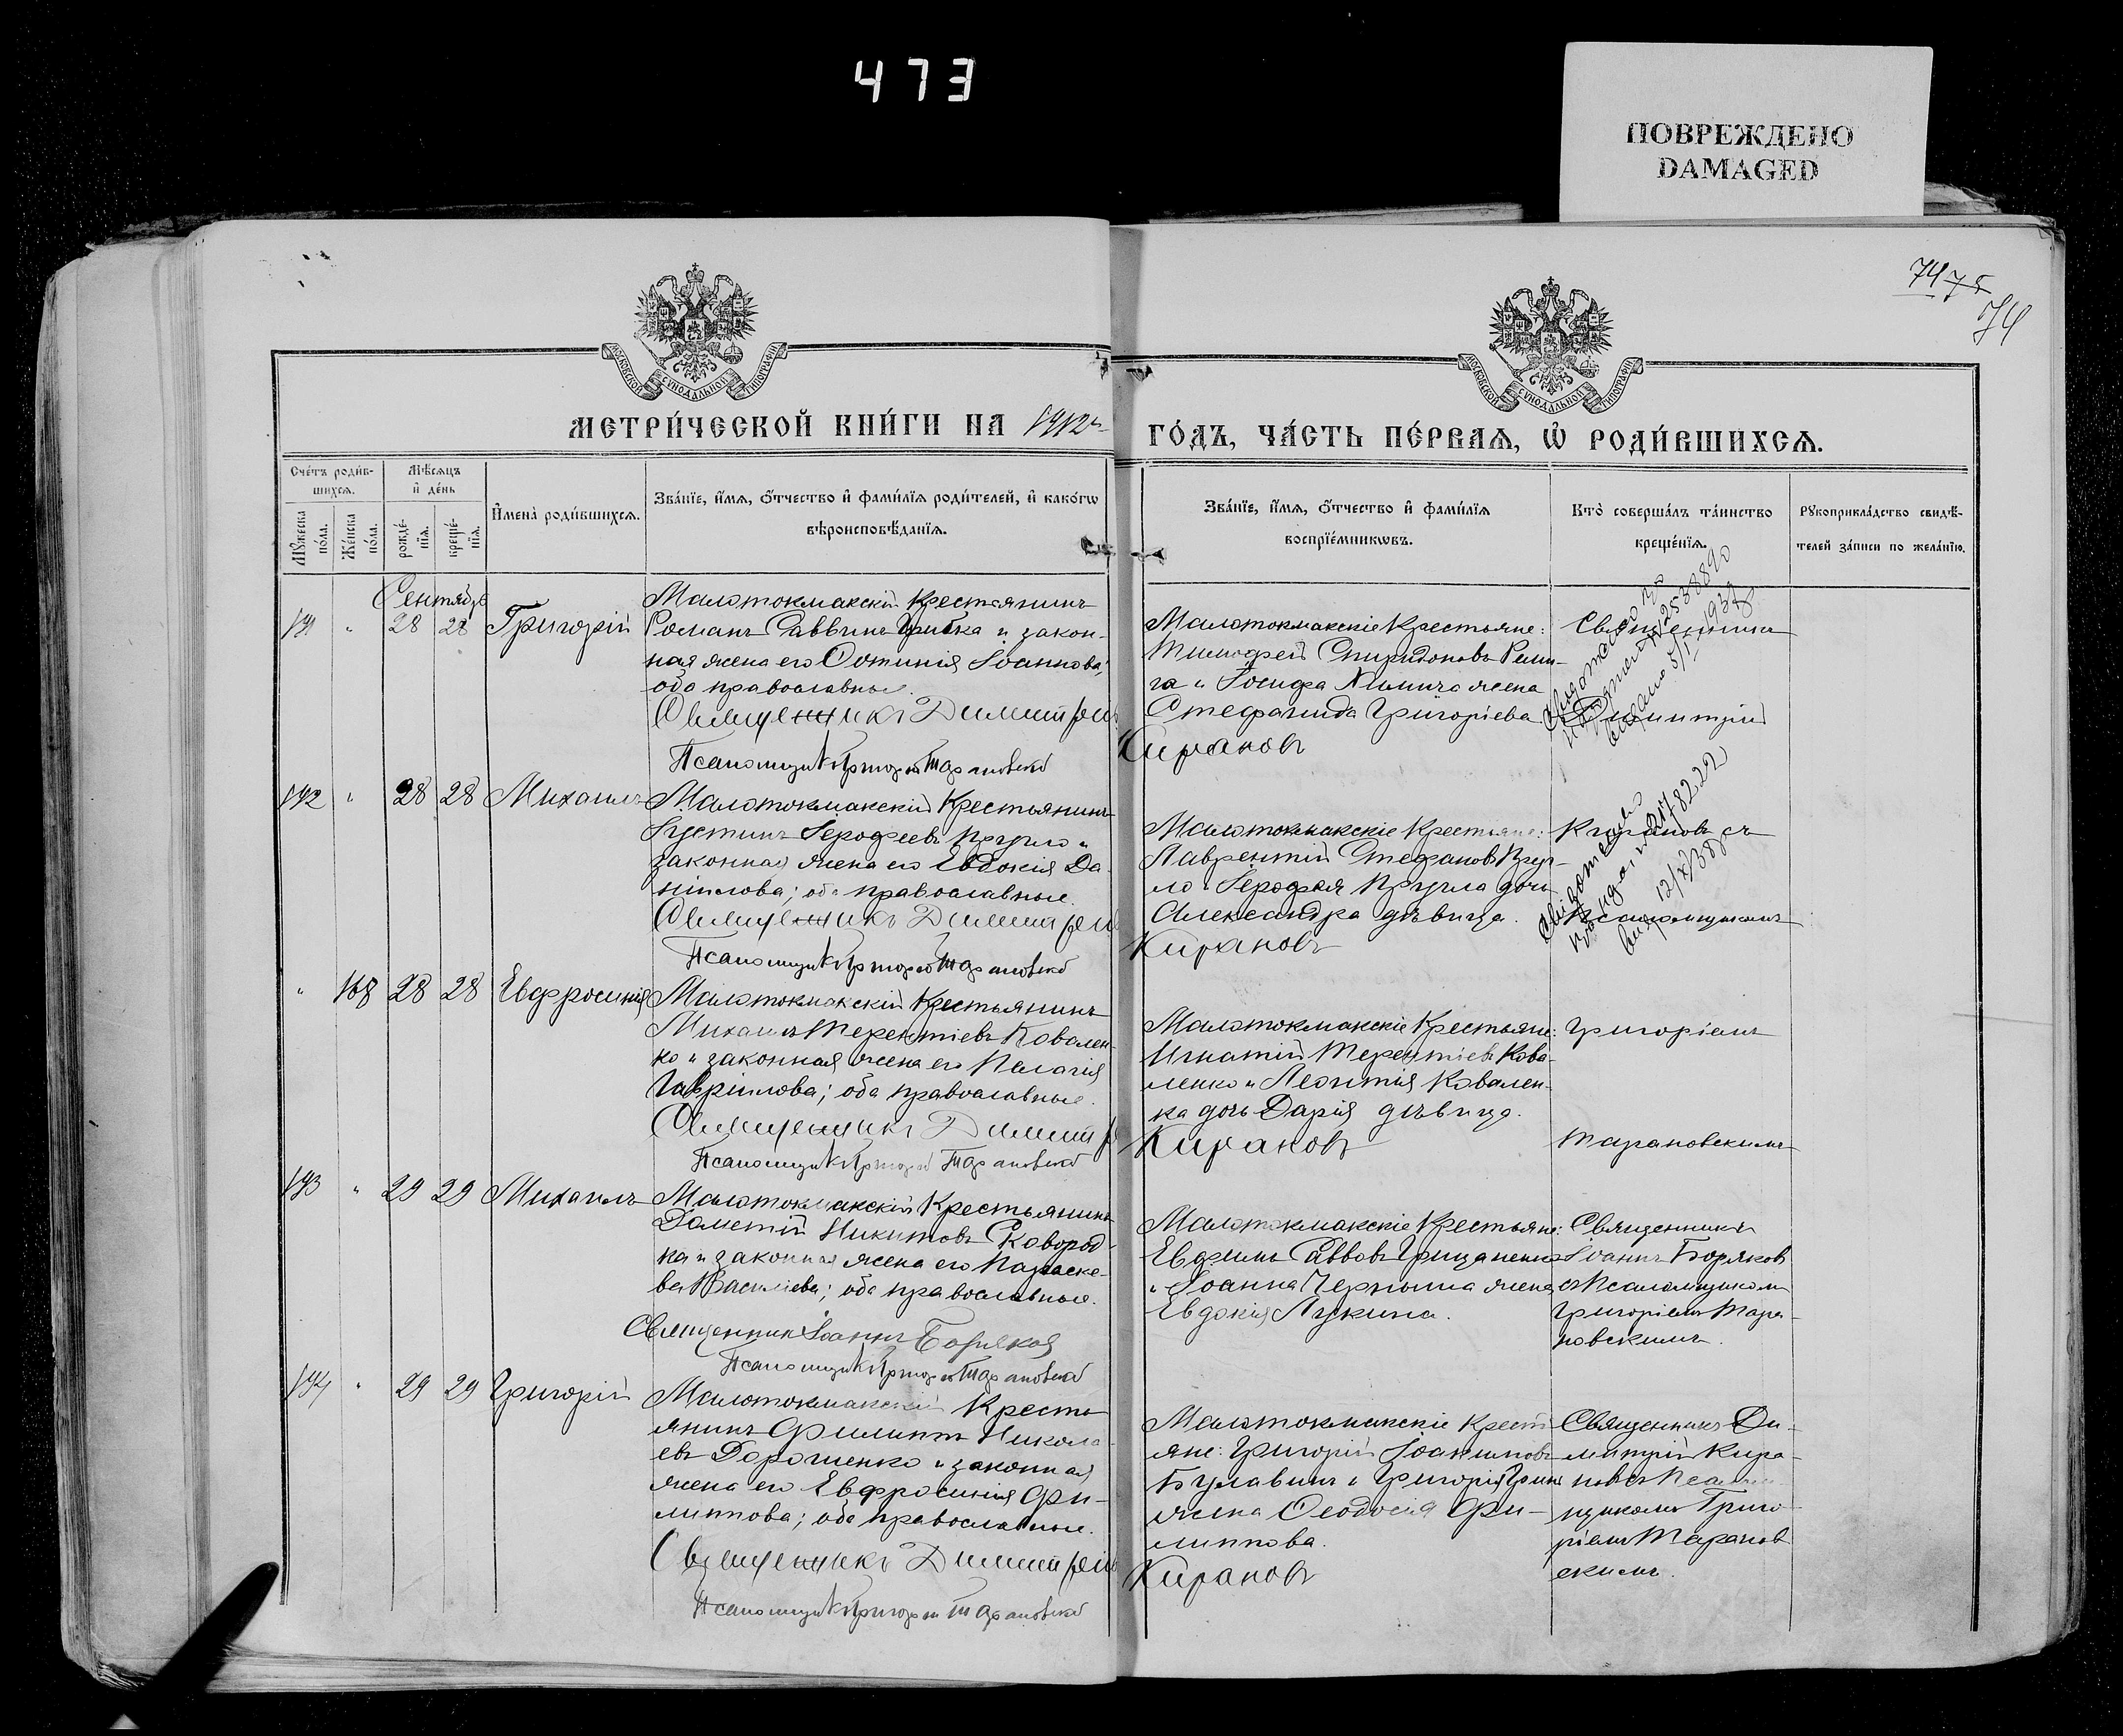 473
ПОВРЕЖДЕНО
DAMAGED
74 75
74
МОСКОВСКОЙ СѴНОДАЛЬНОЙ ТИПОГРАФІИ
МОСКОВСКОЙ СѴНОДАЛЬНОЙ ТИПОГРАФІИ
МЕТРИ́ЧЕСКОЙ КНИ́ГИ НА 1912 г.
ГО́ДЪ, ЧА́СТЬ ПЕ́РВАѦ, Ѡ҆ РОДИ́ВШИХСѦ.
Сче́тъ роди́в-
шихсѧ.
Мѣ́сѧцъ
и҆ де́нь
Мꙋ́жеска
по́ла.
Же́нска
по́ла.
рожде́-
нїѧ.
креще́-
нїѧ.
И҆мена̀ роди́вшихсѧ.
Зва́нїе, и҆́мѧ, о҆́тчество и҆ фами́лїѧ роди́телей, и҆ како́гѡ
вѣроисповѣ́данїѧ.
Зва́нїе, и҆́мѧ, о҆́тчество и҆ фами́лїѧ
воспрїе́мникѡвъ.
Кто̀ соверша́лъ та́инство
креще́нїѧ.
Рꙋкоприкла́дство свидѣ́-
телей за́писи по жела́нїю.
Сентябрь
191 " 28 28 Григорій
Малотокмакскій крестьянинъ
Романъ Саввинъ Грибка и закон-
ная жена его Фотинія Іоаннова;
оба православные.
Священникъ Димитрій Кирановъ
Псаломщикъ Григорій Тарановскій
Малотокмакскіе крестьяне:
Тимофей Спиридоновъ
га и Іосифа жена
Стефанида Григоріева.
Священникъ
Димитрій
192 " 28 28 Михаилъ
Малотокмакскій крестьянинъ
Іустинъ Іерофеевъ Кругло и
законная жена его Евдокія Да-
ніилова; оба православные.
Священникъ Димитрій Кирановъ
Псаломщикъ Григорій Тарановскій
Малотокмакскіе крестьяне:
Лаврентій Стефановъ Круг-
ло и Іерофея Кругла дочь
Александра дѣвица.
Кирановъ съ
Псаломщикомъ
" 168 28 28 Евфросинія
Малотокмакскій крестьянинъ
Михаилъ Терентіевъ Ковален-
ко и законная жена его Пелагія
Гавріилова; оба православные.
Священникъ Димитрій Кирановъ
Псаломщикъ Григорій Тарановскій
Малотокмакскіе крестьяне:
Игнатій Терентіевъ Кова-
ленко и Леонтія Ковален-
ка дочь Дарія дѣвица.
Григоріемъ
Тарановскимъ
193 " 29 29 Михаилъ
Малотокмакскій крестьянинъ
Дометій Никитовъ Сковород-
ка и законная жена его Параске-
ва Василіева; оба православные.
Священникъ Іоаннъ Боряковъ
Псаломщикъ Григорій Тарановскій
Малотокмакскіе крестьяне:
Евфимъ Саввовъ Грищаненко
и Іоанна жена
Евдокія Лукина.
Священникъ
Іоаннъ Боряковъ
съ Псаломщикомъ
Григоріемъ Тара-
новскимъ.
194 " 29 29 Григорій
Малотокмакскій кресть-
янинъ Филиппъ Никола-
евъ Дорошенко и законная
жена его Евфросинія Фи-
липпова; оба православные.
Священникъ Димитрій Кирановъ
Псаломщикъ Григорій Тарановскій
Малотокмакскіе кресть-
яне: Григорій Іоакимовъ
Булавинъ и Григорія
жена Феодосія Фи-
липпова.
Священникъ Ди-
митрій Кира-
новъ съ Псалом-
щикомъ Григо-
ріемъ Таранов-
скимъ.